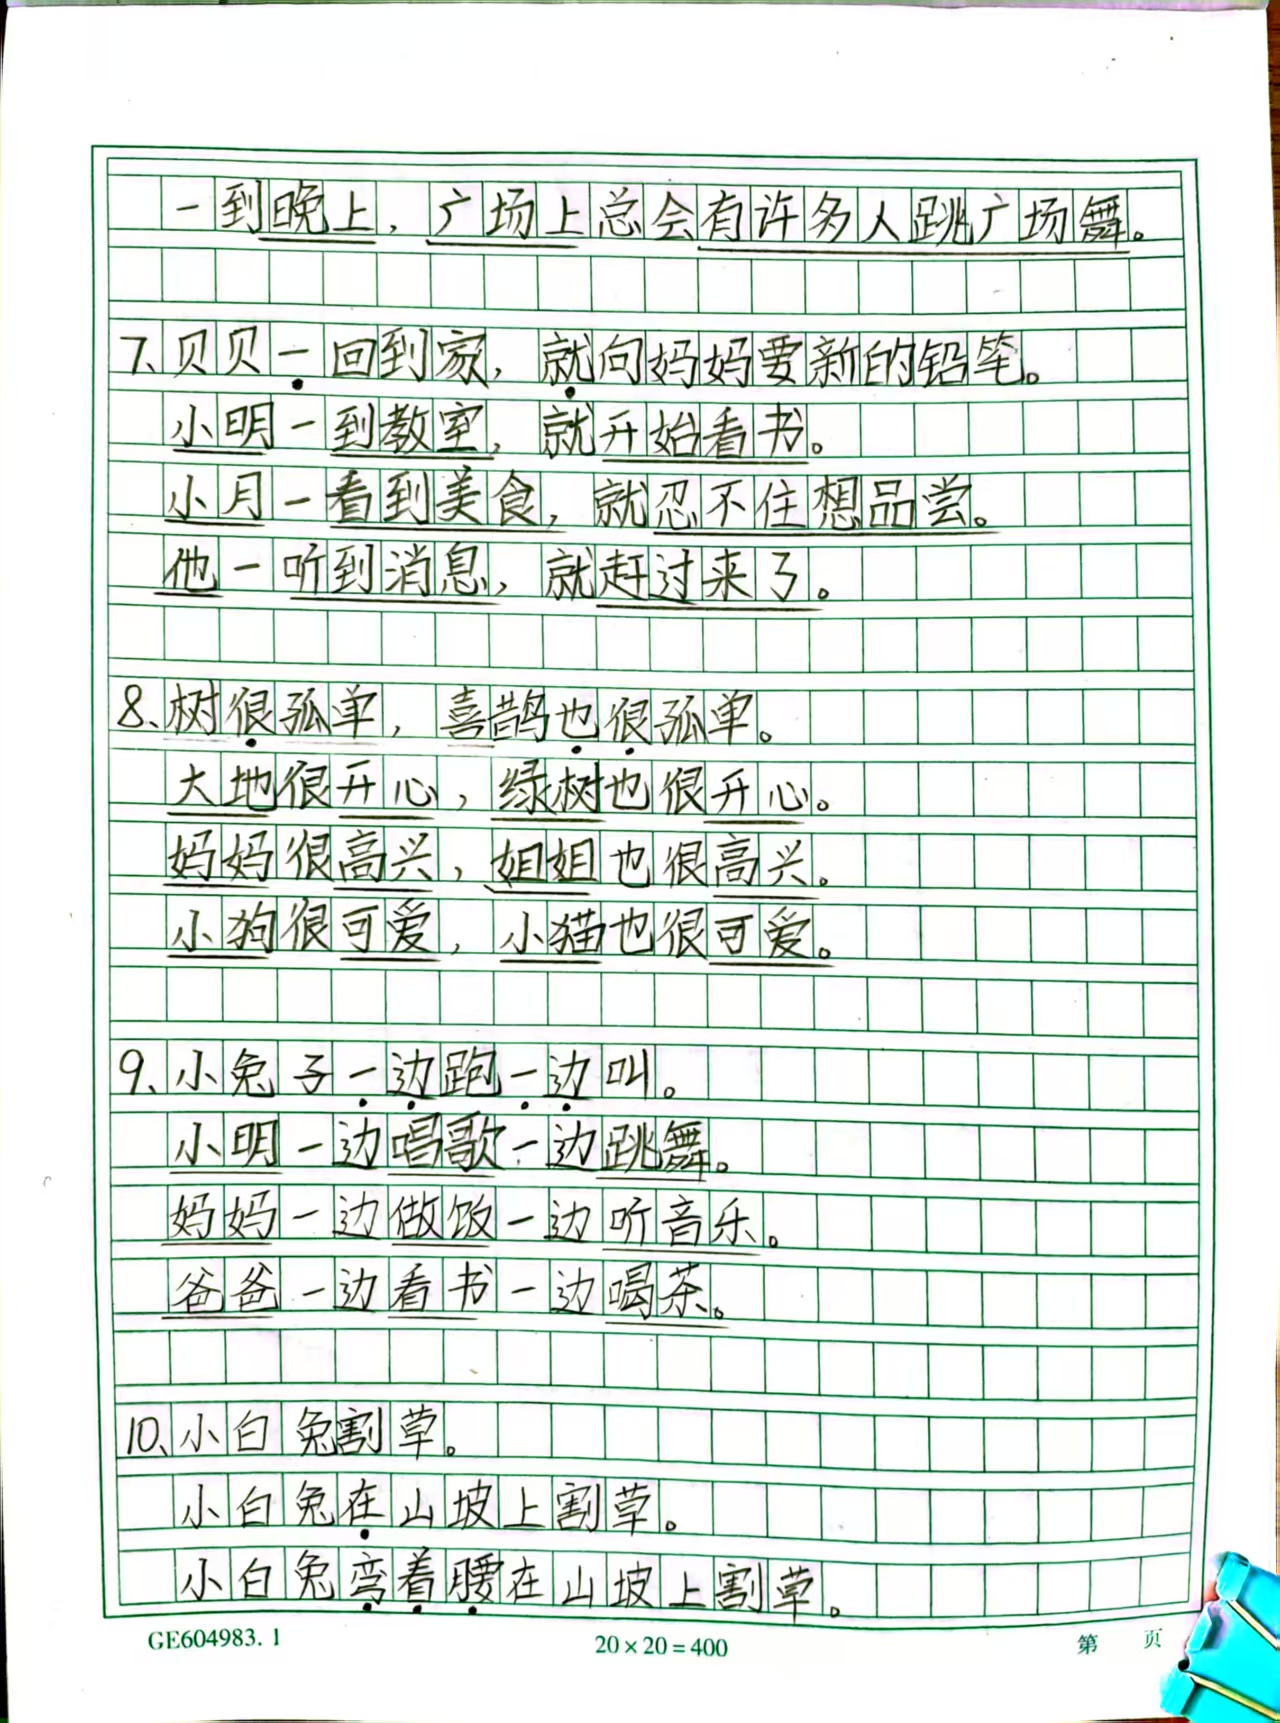 一到晚上，广场上总会有许多人跳广场舞。
7、贝贝一回到家，就向妈妈要新的铅笔。
小明一到教室，就开始看书。
小月一看到美食，就忍不住想品尝。
他一听到消息，就赶过来了。
8、树很孤单，喜鹊也很孤单。
大地很开心，绿树也很开心。
妈妈很高兴，姐姐也很高兴。
小狗很可爱，小猫也很可爱。
9、小兔子一边跑一边叫。
小明一边唱歌一边跳舞。
妈妈一边做饭一边听音乐。
爸爸一边看书一边喝茶。
10、小白兔割草。
小白兔在山坡上割草。
小白兔弯着腰在山坡上割草。
GE604983.1 20×20=400 第 页